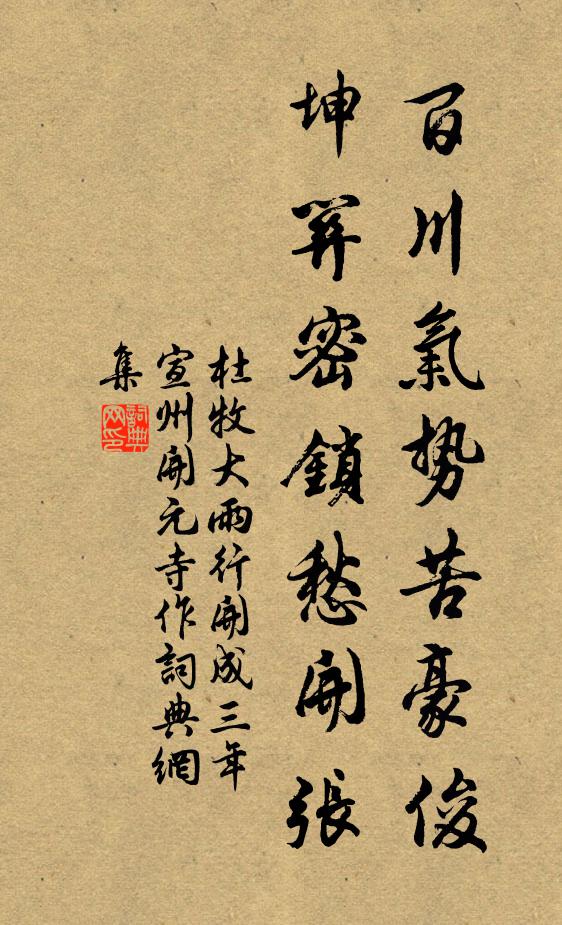 百川氣勢苦豪俊
坤關密鎖愁開張
杜牧大雨行開成三年
宣州開元寺作詞典網
集
詞典
网印